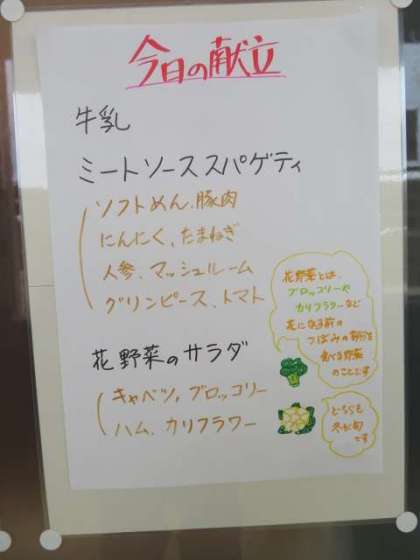 今日の献立
牛乳
ミートソーススパゲティ
ソフトめん、豚肉
にんにく、たまねぎ
人参、マッシュルーム
グリンピース、トマト
花野菜のサラダ
キャベツ、ブロッコリー
ハム、カリフラワー
花野菜とは、
ブロッコリーや
カリフラワーなど
花になる前の
つぼみの部分を
食べる野菜
のことです
どちらも
冬が旬
です